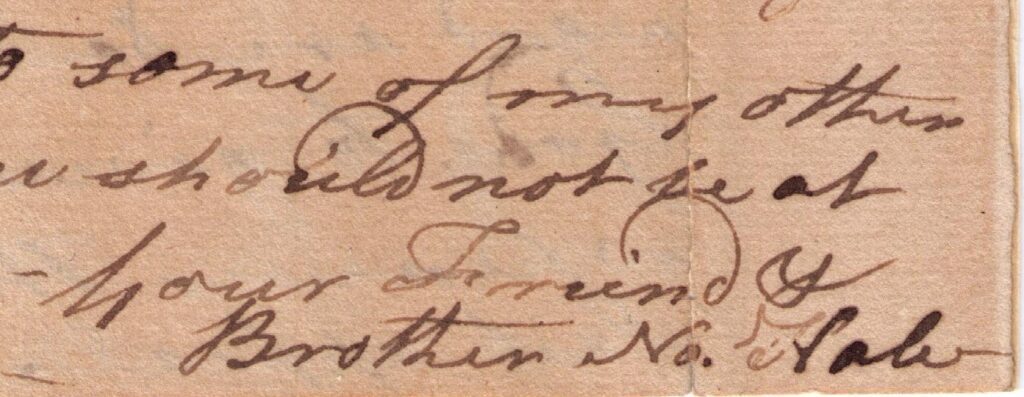 to some of my other
should not be at
your Friend &
Brother No. Hale